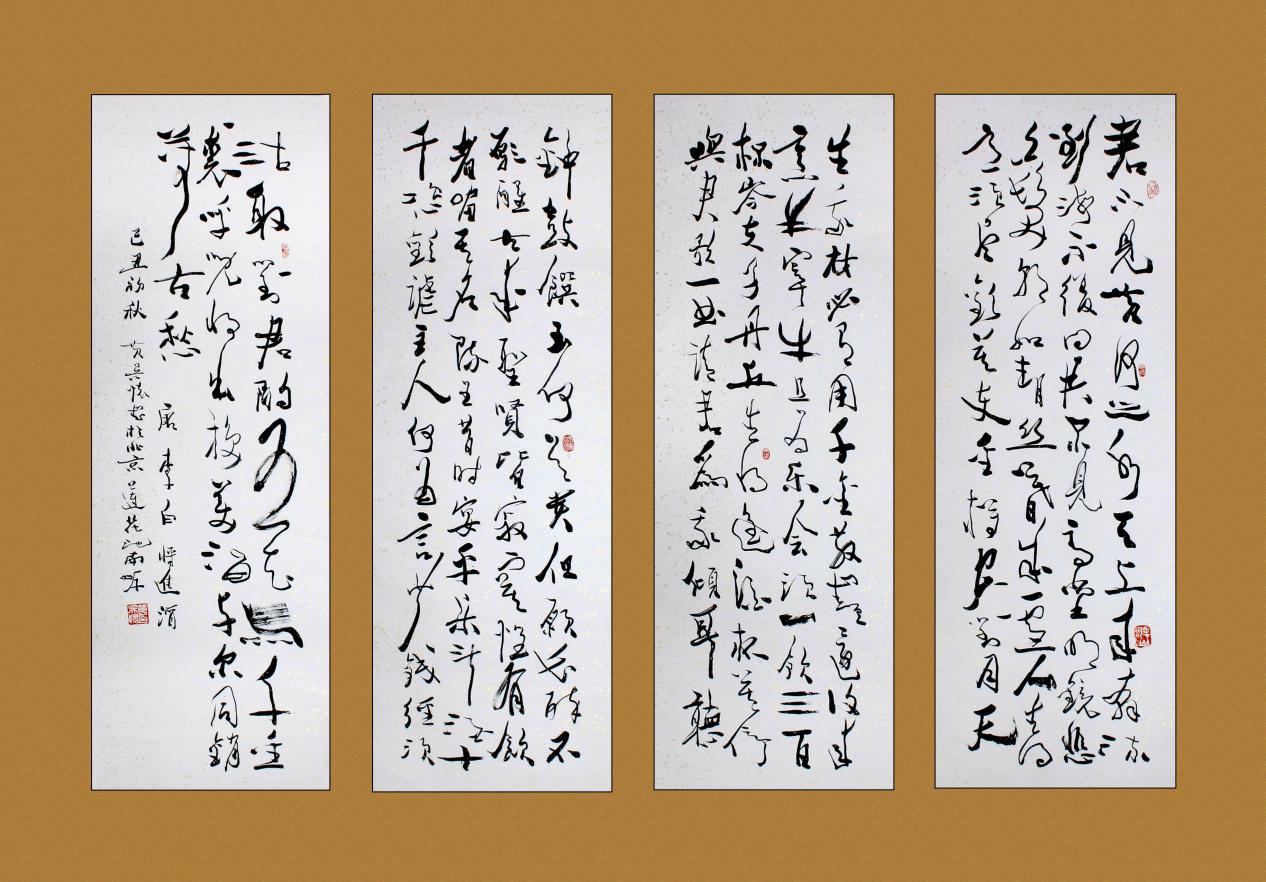 君不見黄河之水天上来奔流
到海不復回君不見高堂明鏡悲
白髮朝如青絲暮成雪人生得
意須盡歡莫使金樽空對月天
生我材必有用千金散盡還復来
烹羊宰牛且為樂会須一飲三百
杯岑夫子丹丘生将進酒杯莫停
與君歌一曲請君為我傾耳聽
鐘鼓饌玉何足貴但願長醉不
願醒古来聖賢皆寂寞惟有飲
者留其名陳王昔時宴平樂斗酒十
千恣歡謔主人何為言少錢徑須
沽取對君酌五花馬千金
裘呼児将出換美酒与尔同銷
萬古愁 唐李白将進酒
己丑初秋 於北京蓮花池南